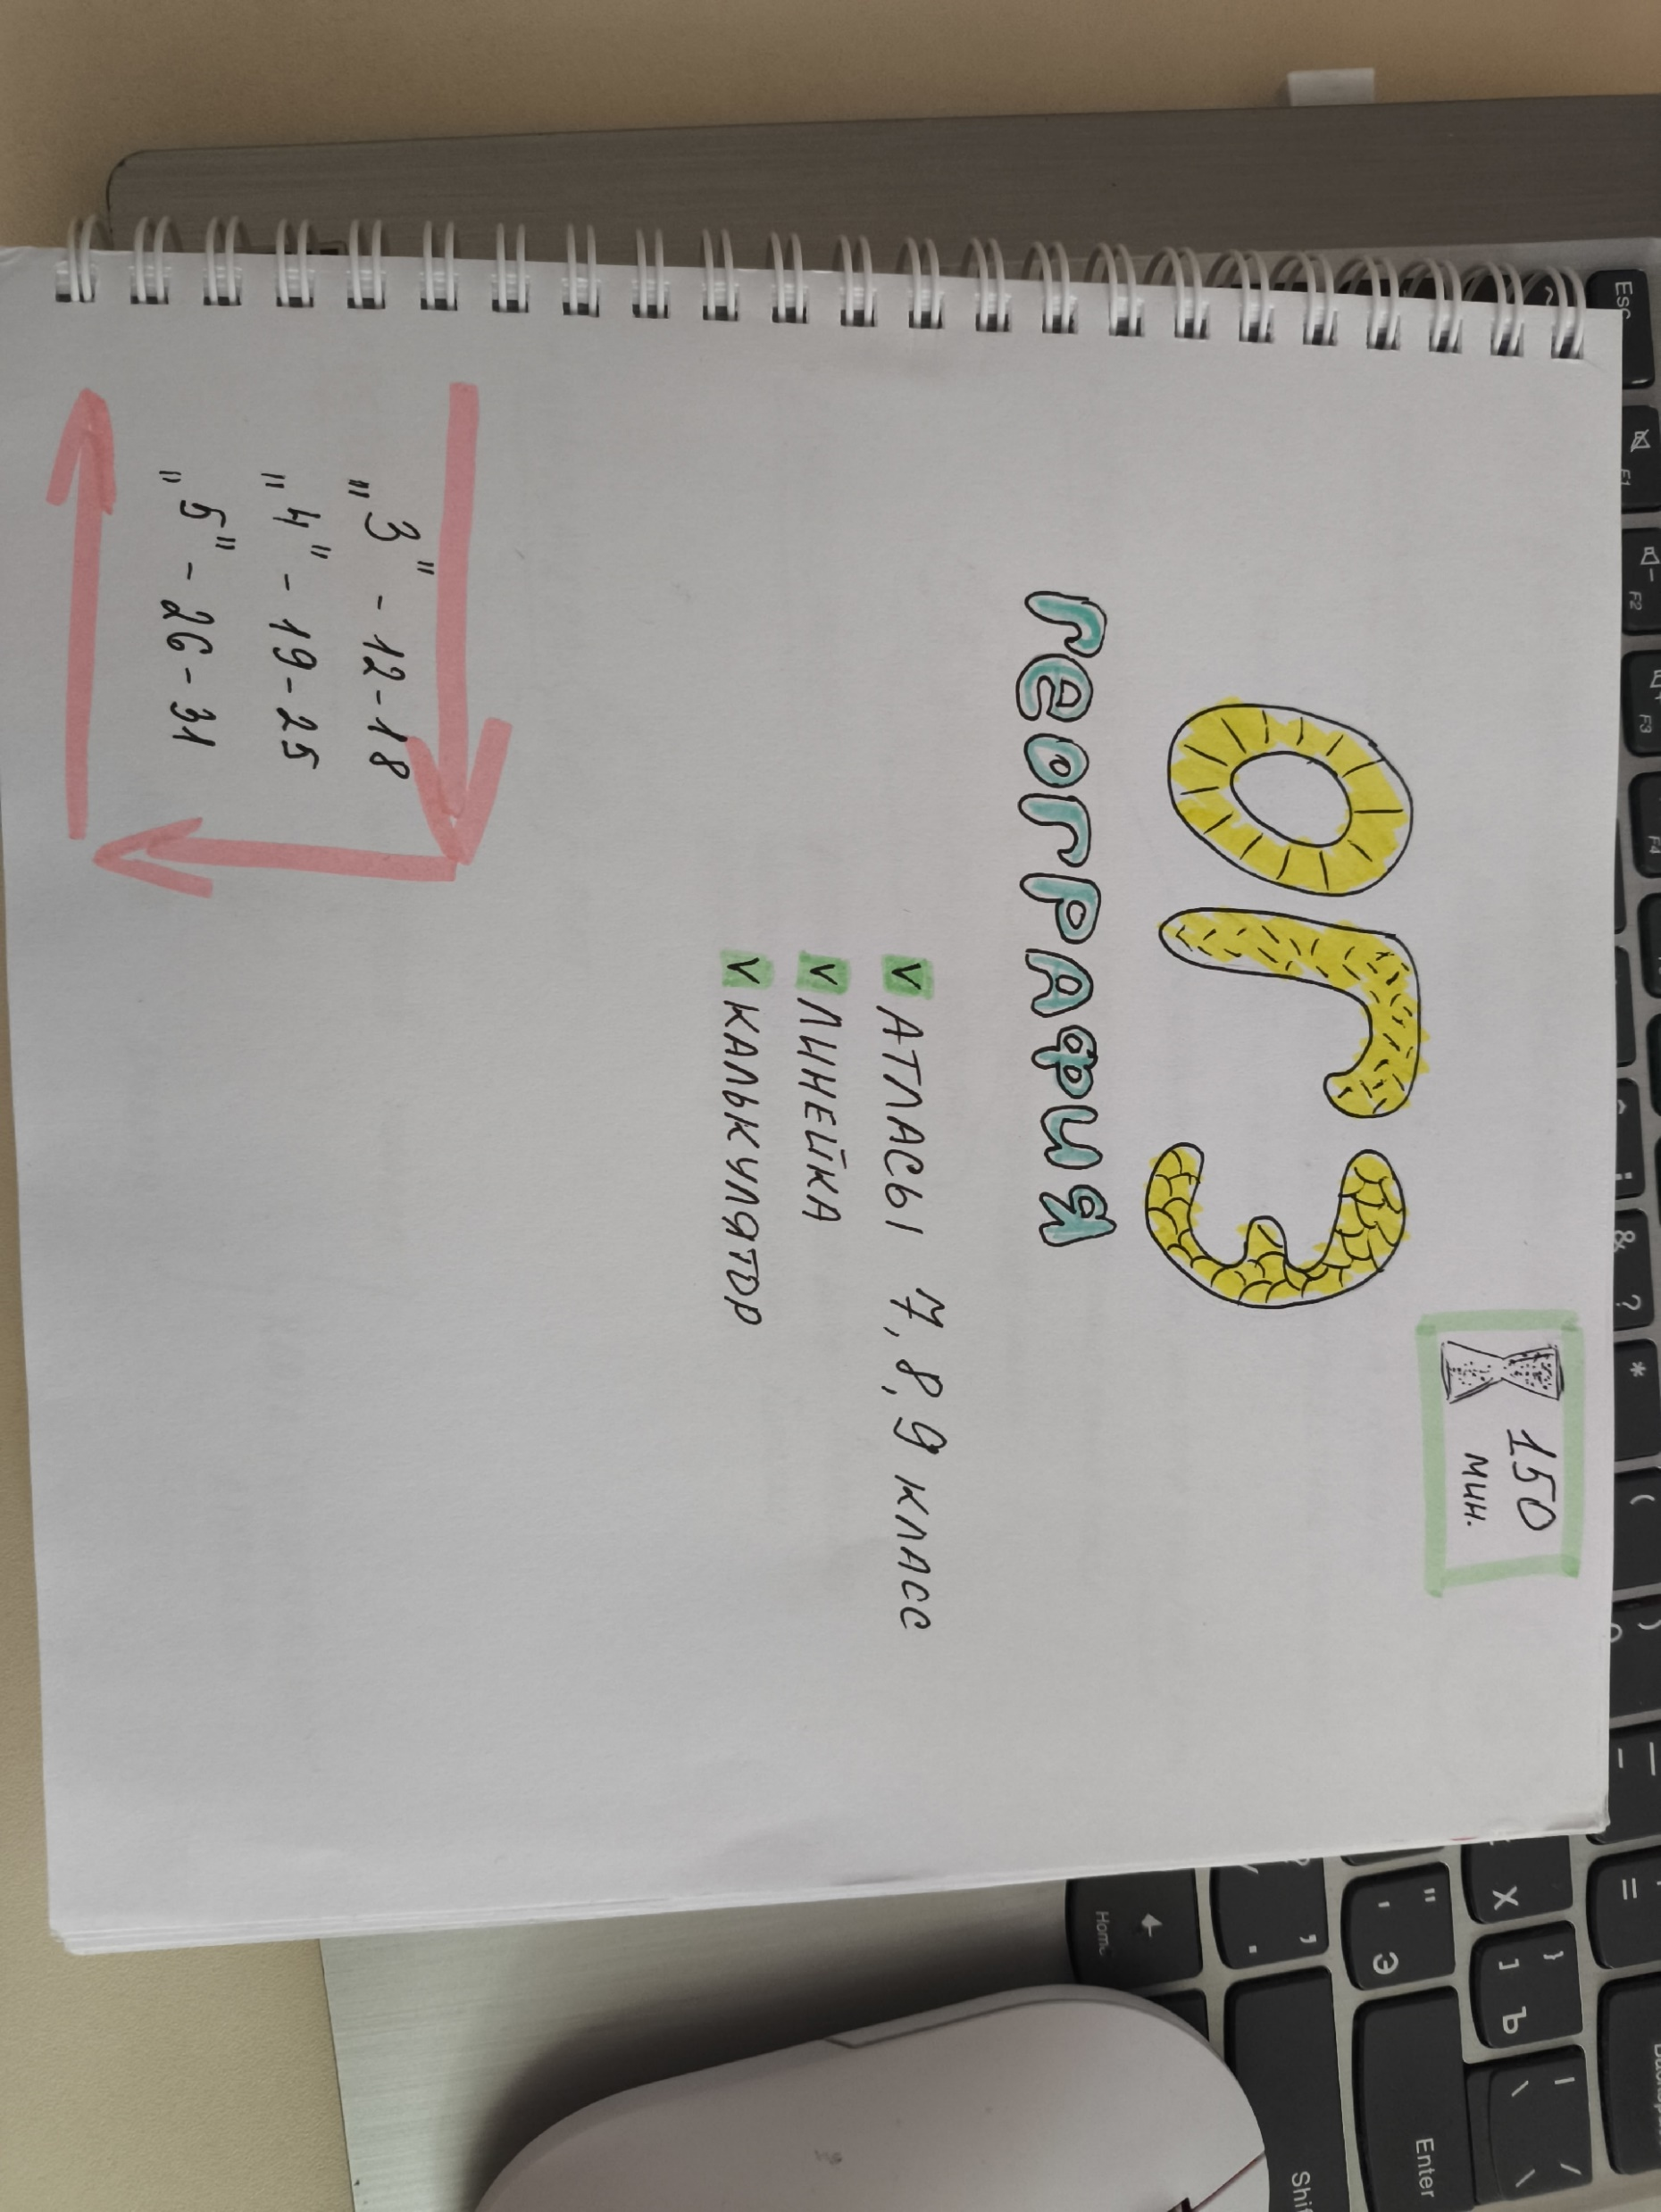 150
мин.
ОГЭ
география
v АТЛАСЫ 7, 8, 9 КЛАСС
v ЛИНЕЙКА
v КАЛЬКУЛЯТОР
„3" - 12-18
„4" - 19-25
„5" - 26-31
Esc
F1
F2
F3
F4
& ?
*
(
)
=
Х
} ] Ъ
| \ / \
" ' Э
Enter
Home
Shi